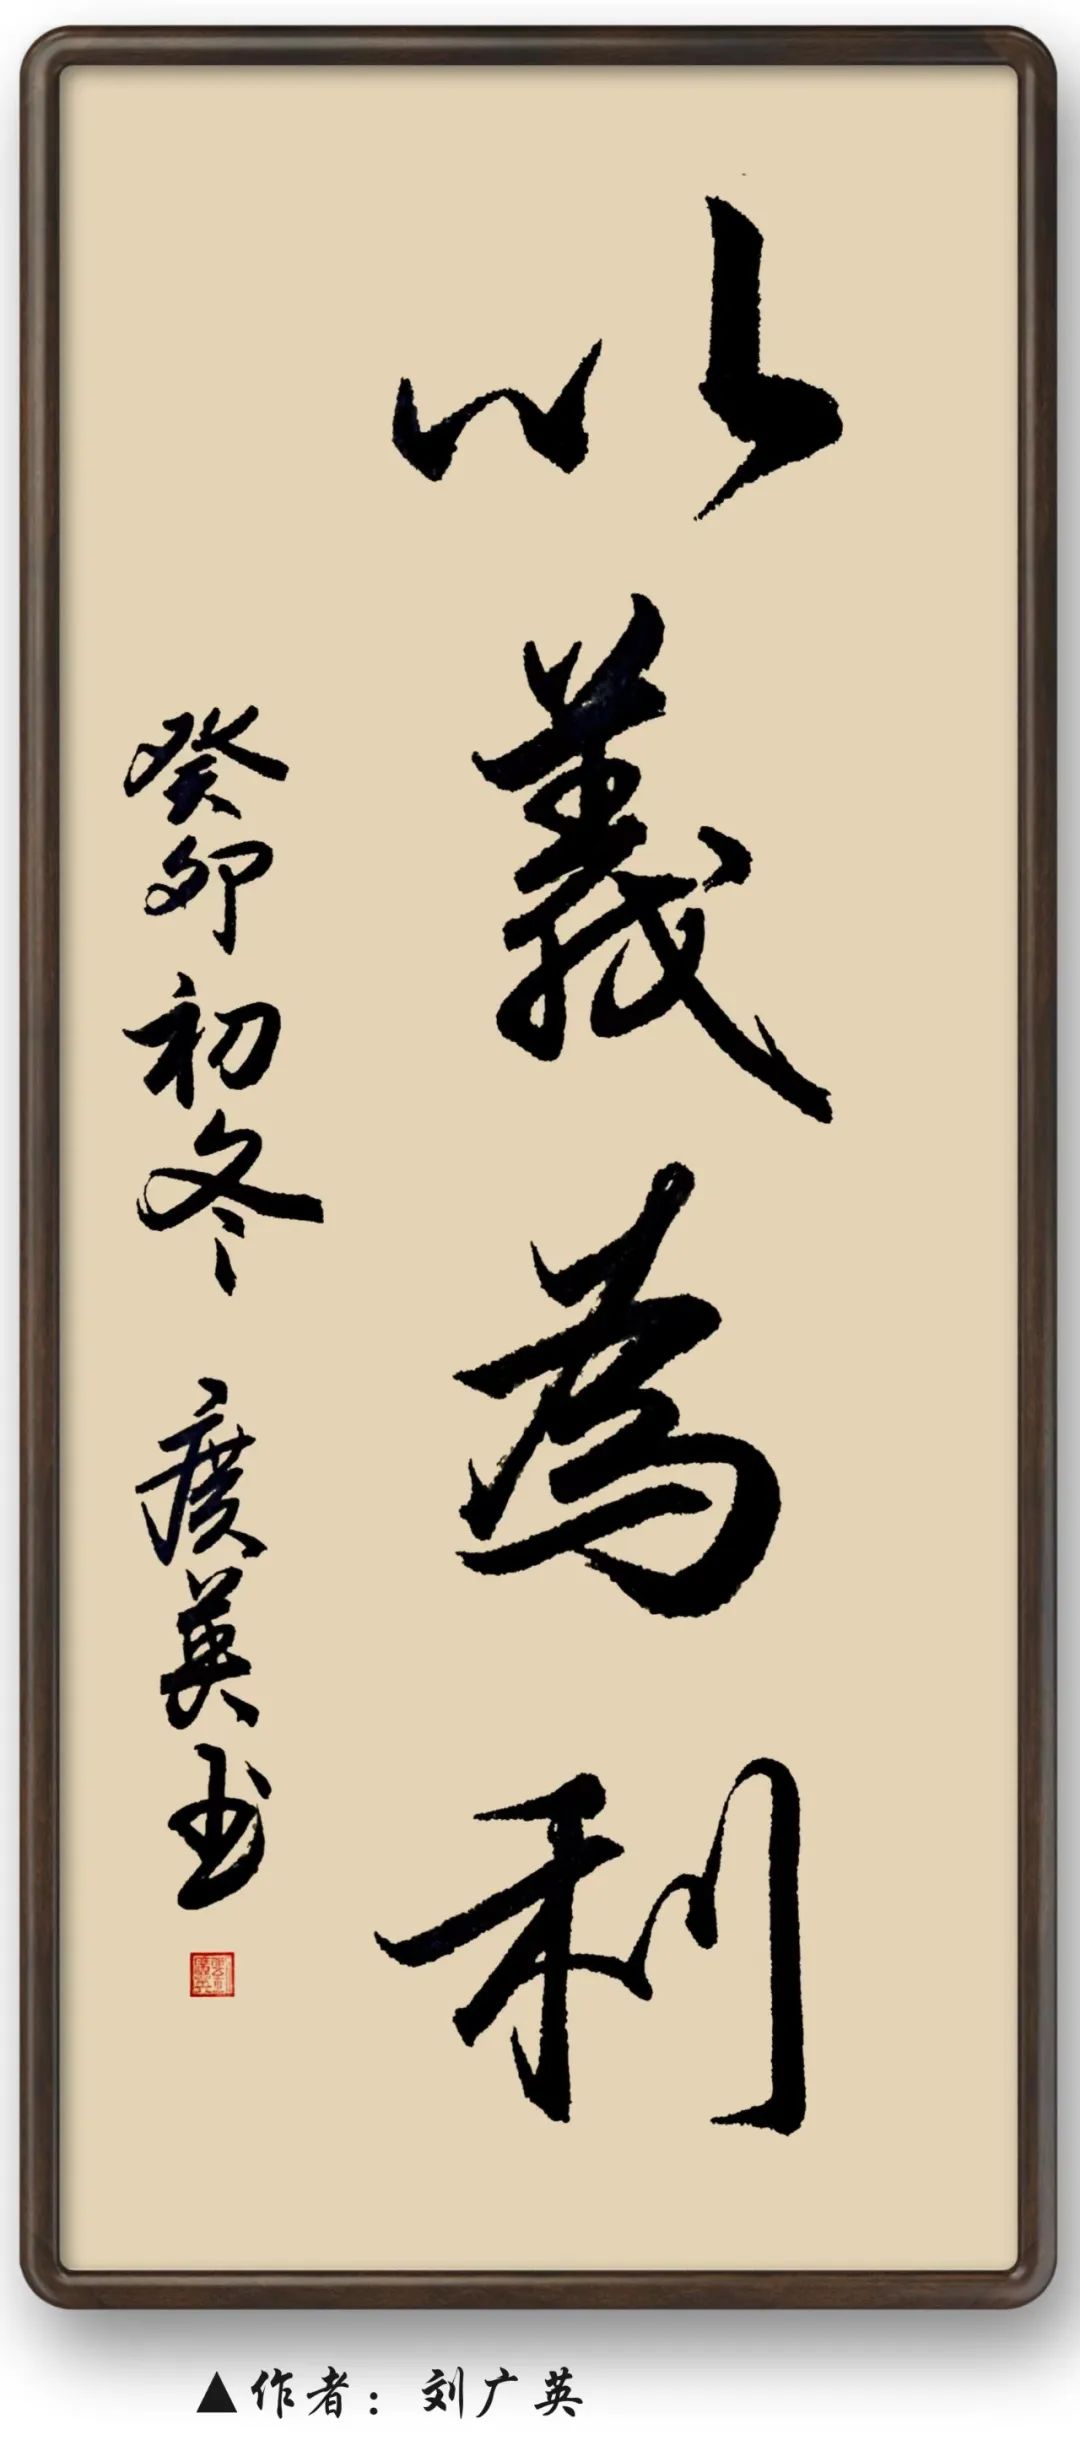 以義為利
癸卯初冬 廣英书
▲作者：刘广英